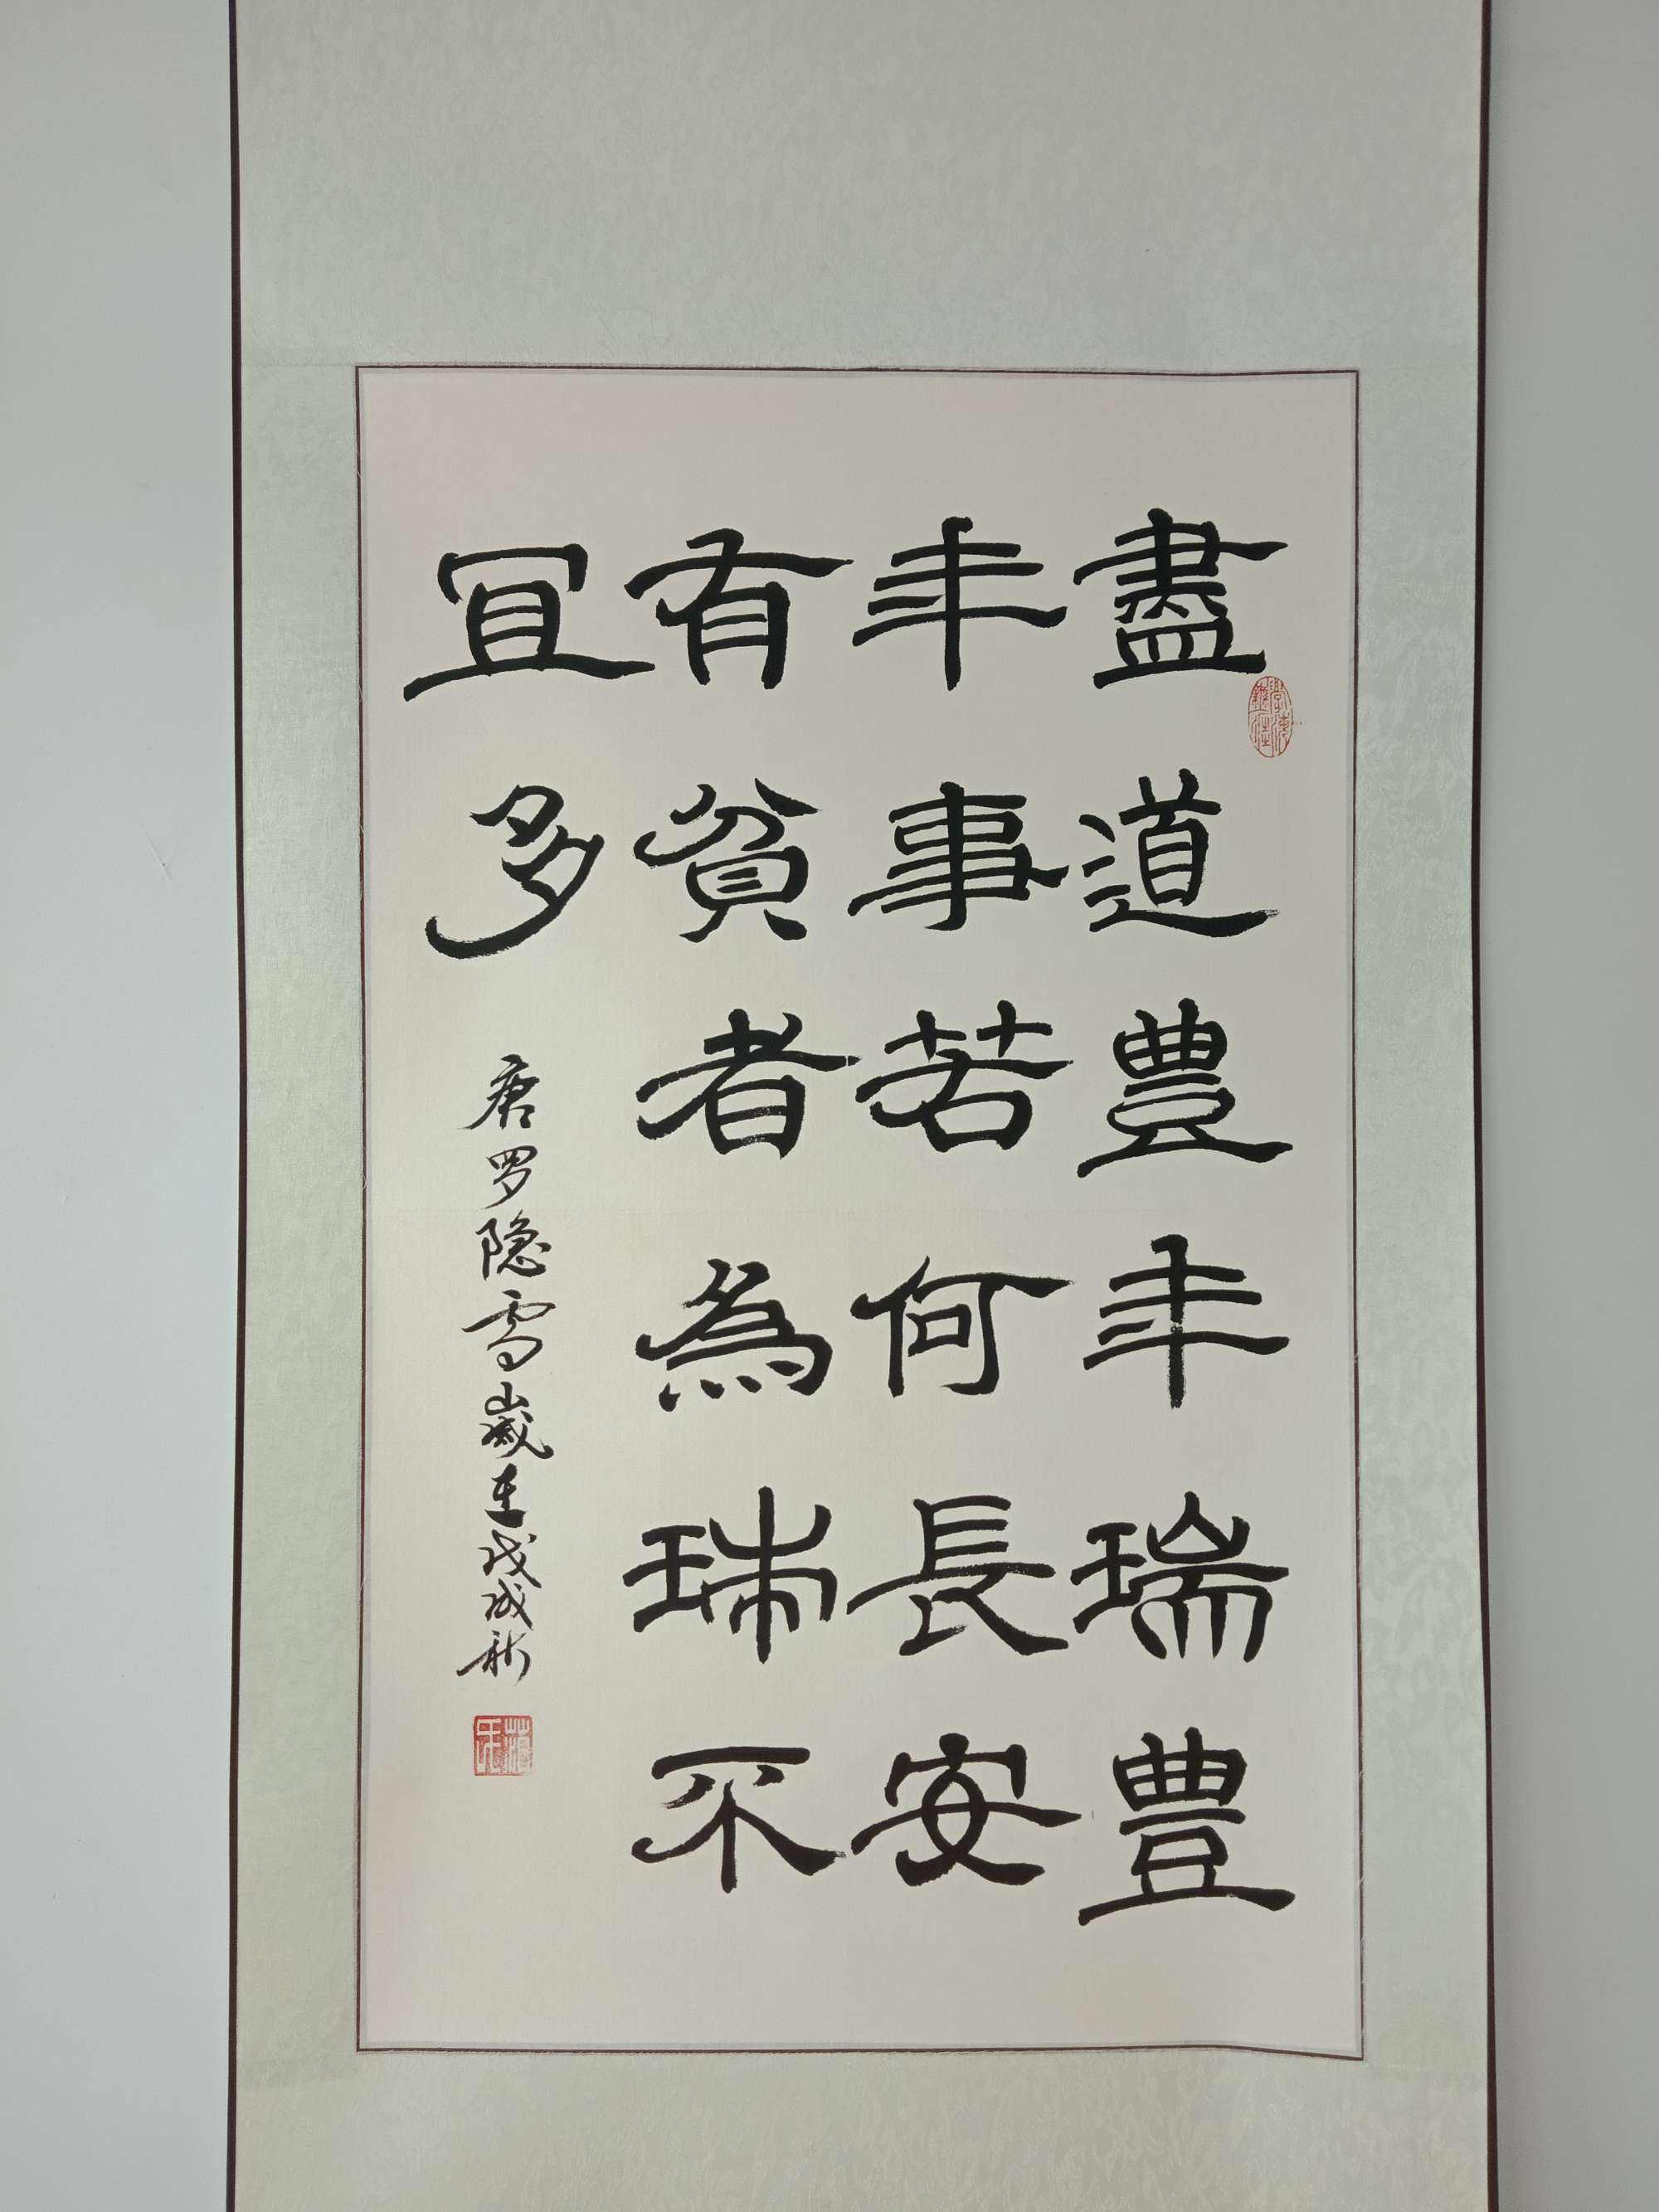 盡道豊年瑞豊
年事若何長安
有貧者為瑞不
宜多
唐罗隐雪嵗在戊戌新